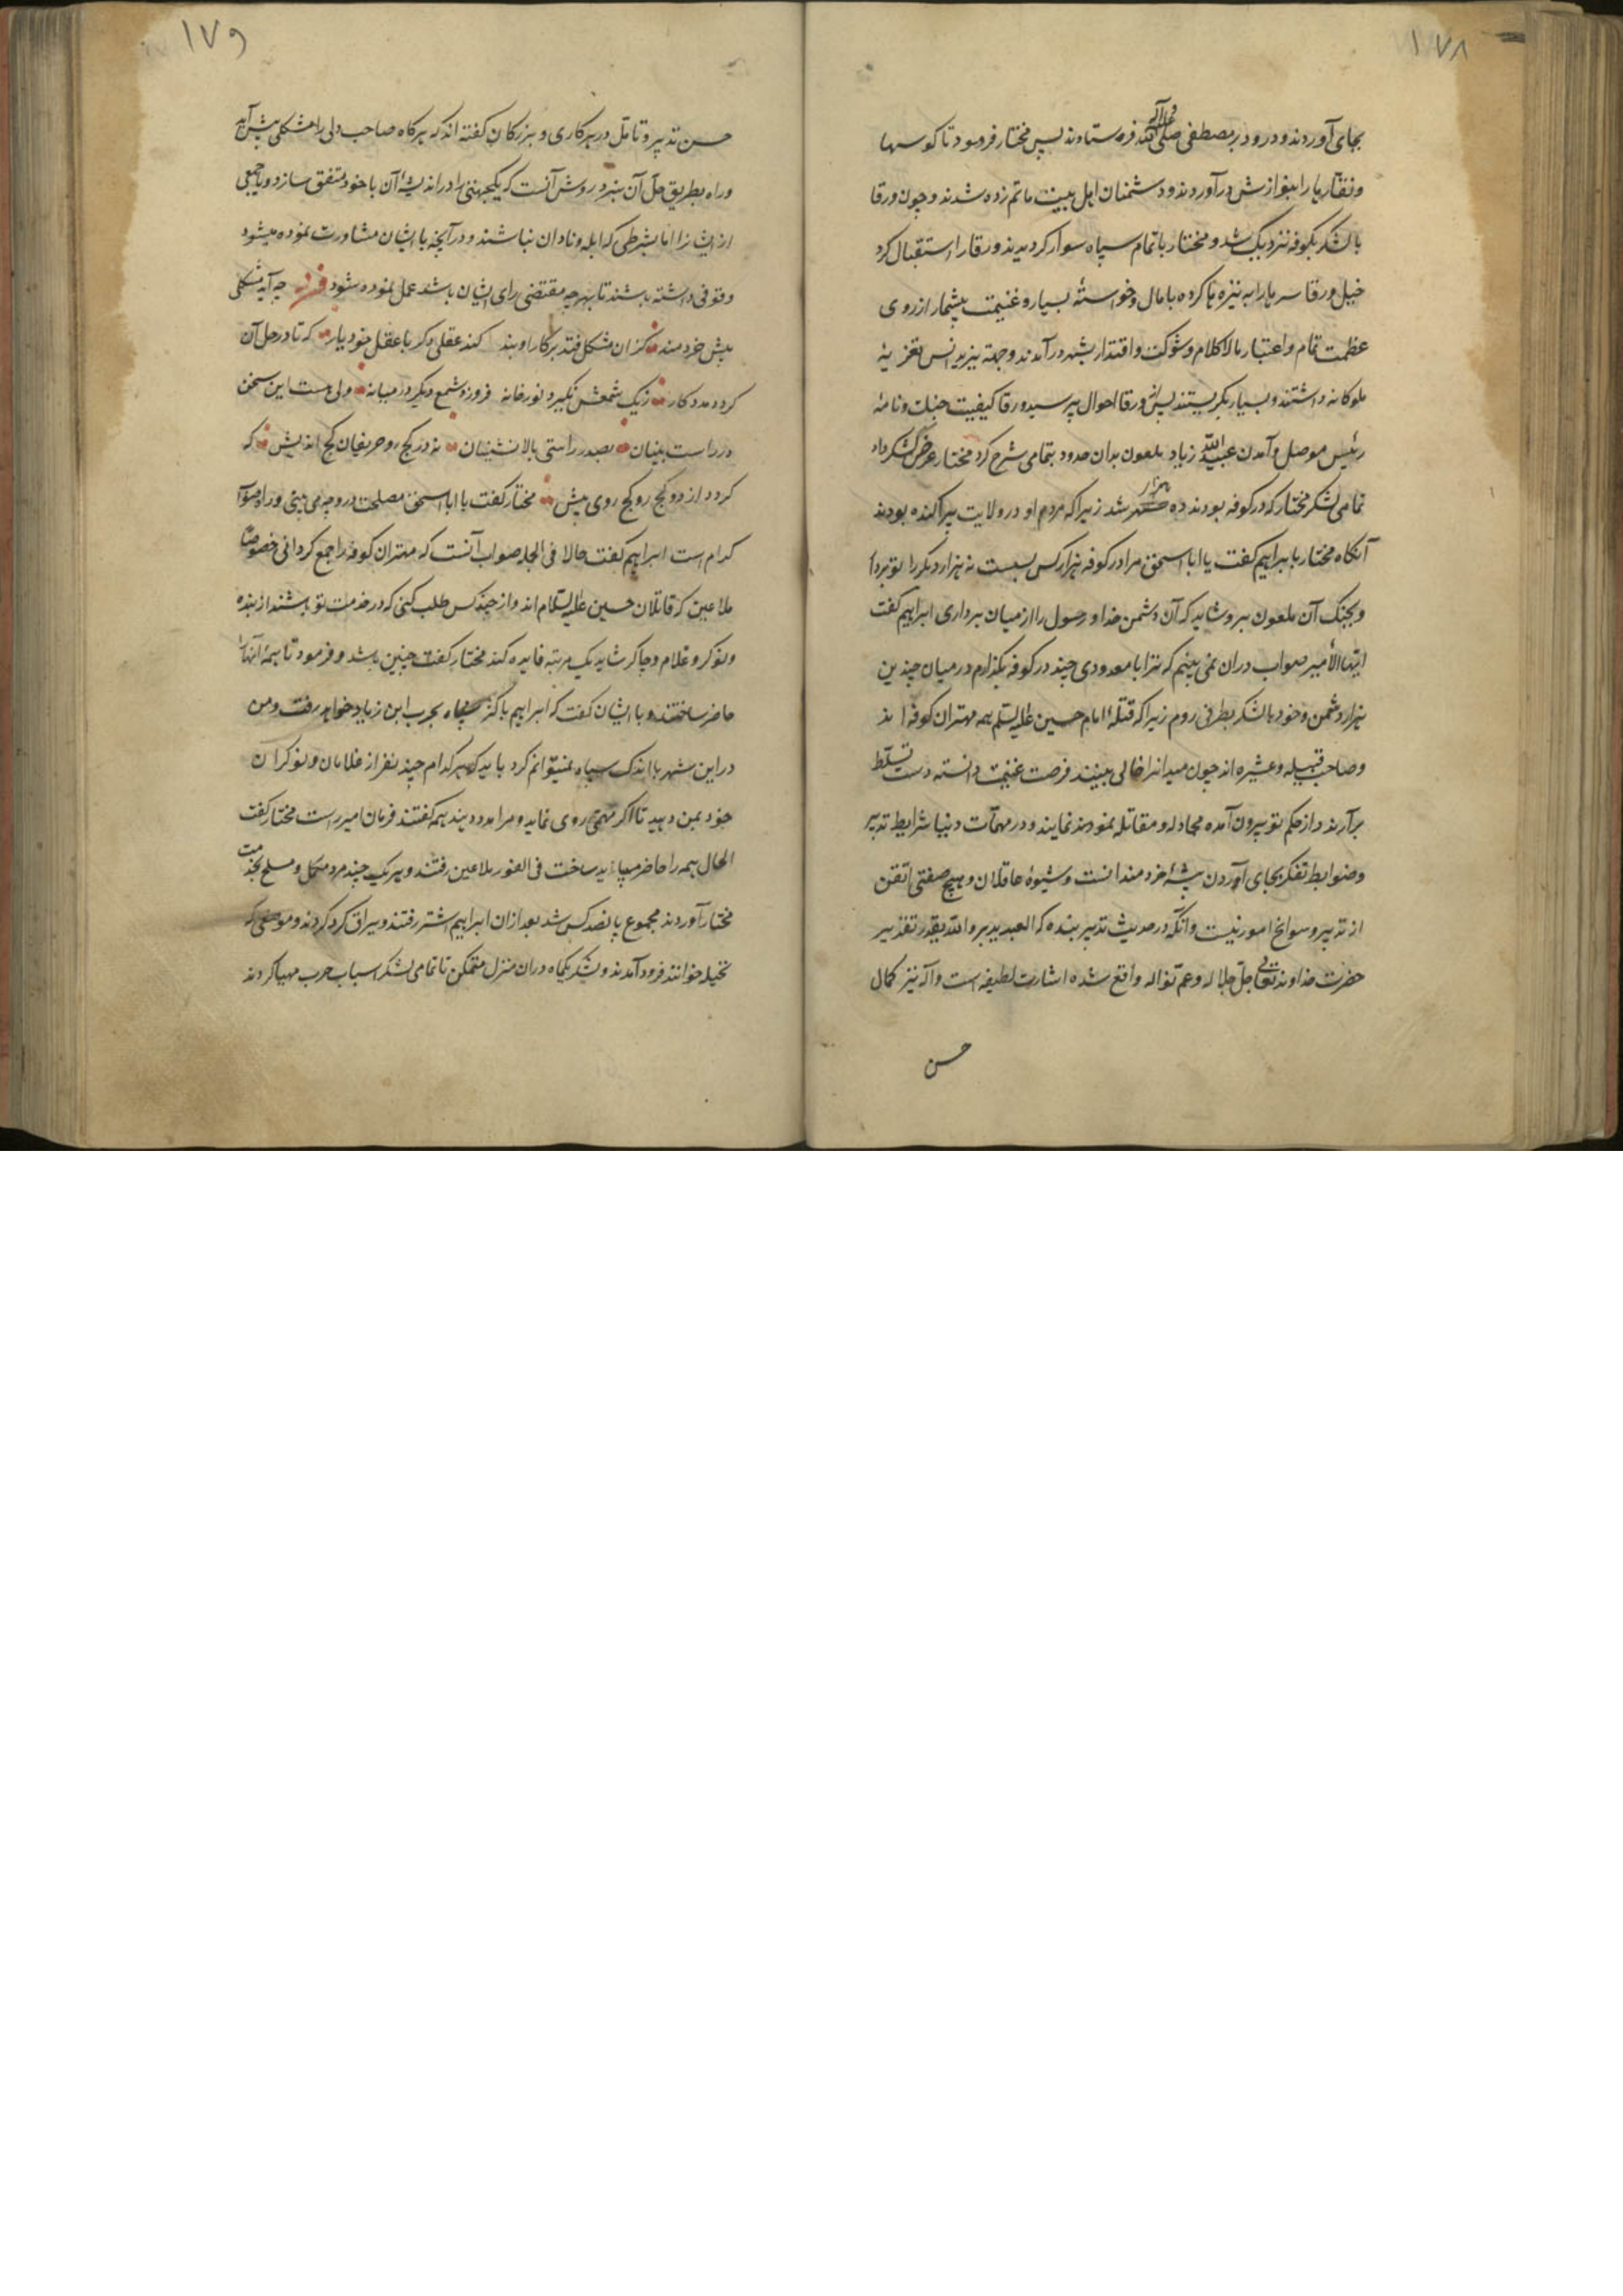 ۱۷۸
بجای آوردند و درود بر مصطفی صلی الله و آله فرستادند پس مختار فرمود تا کوسها
و نقاره‌ها را بنوازش درآوردند و دشمنان اهل بیت ماتم زده شدند و چون ورقا
با لشکر بکوفه نزدیک شد و مختار با تمام سپاه سوار کردیدند ورقا را استقبال کرد
خیل ورقا سرها را بر نیزه‌ها کرده با مال و خواسته بسیار و غنیمت بیشمار از روی
عظمت تمام و اعتبار مالاکلام و شوکت و اقتدار بشهر درآمدند و جهة یزید انس تعزیهٔ
ملوکانه داشتند و بسیار بکریستند پس از ورقا احوال پرسید ورقا کیفیت جنک و نامهٔ
رئیس موصل و آمدن عبیدالله زیاد ملعون بدان حدود بتمامی شرح کرد مختار عرض لشکر داد
تمامی لشکر مختار که در کوفه بودند ده هزار شد زیرا که مردم او در ولایت پراکنده بودند
آنکاه مختار با ابراهیم کفت یا ابا اسحق مرا در کوفه هزار کس بست نه هزار دیکر را تو بردا
و بجنک آن ملعون برو شاید که آن دشمن خدا و رسول را از میان برداری ابراهیم کفت
ایها الأمیر صواب دران نمی بینم که ترا با معدودی چند در کوفه بکذارم در میان چندین
هزار دشمن و خود با لشکر بطرفی روم زیرا که قتلهٔ امام حسین علیه السلم همه مهتران کوفه اند
و صاحب قبیله و عشیره اند چون میدانرا خالی بینند فرصت غنیمت دانسته دست تسلّط
برآرند و از حکم تو بیرون آمده مجادله و مقاتله نمودند نمایند و در مهمات دنیا شرایط تدبیر
و ضوابط تفکر بجای آوردن پیشهٔ خردمندانست و شیوهٔ عاقلان و هیچ صفتی اتقن
از تدبیر و سوانح امور نیست و آنکه در حدیث تدبیر بنده که العبد یدبر و الله یقدر تقدیر
حضرت خداوند تعالی جل جلاله و عم نواله واقع شده اشارت لطیفه است و آله نیز کمال
حسن
۱۷۹
حسن تدبیر و تامّل در هر کاری و بزرکان کفته اند که هرکاه صاحب دلی را مشکلی پیش آید
و راه بطریق حل آن نبرد روش آنست که یکجهتی را در اندیشهٔ آن با خود متفق سازد و با جمعی
ازیشانرا اما بشرطی که ابله و نادان نباشند و در آنچه با ایشان مشاورت نموده میشود
وقوفی داشته باشند تا بهرچه مقتضی رای ایشان باشد عمل نموده شود فرد چه آید مشکلی
پیش خردمند کزان مشکل فتد بر کار او بند کند عقلی دکر با عقل خود یار که تا در حل آن
کردد مددکار ز یک شمعش نکیرد نور خانه فروزد شمع دیکر در میانه ولی هست این سخن
در راست بینان بصدر راستی بالانشینان نه در کج رو حریفان کج اندیش که
کردد از دو کج رو کج روی بیش مختار کفت یا ابا اسحق مصلحت در چه می بینی و راه صواب
کدام است ابراهیم کفت حالا فی الجمله صواب آنست که مهتران کوفه را جمع کردانی خصوصاً
ملاعین که قاتلان حسین علیه السّلام اند و از چند کس طلب کنی که در خدمت تو باشند از بنده
و نوکر و غلام و چاکر شاید یک مرتبه فایده کند مختار کفت چنین باشد و فرمود تا همهٔ آنها را
حاضر ساختند و با ایشان کفت که ابراهیم با کل سپاه بحرب ابن زیاد خواهد رفت و من
در این شهر با اندک سپاه نمیتوانم کرد باید که هر کدام چند نفر از غلامان و نوکران
خود بمن دهید تا اکر مهمی روی نماید و مرا مدد دهند همه کفتند فرمان امیر راست مختار کفت
الحال همه را حاضر می باید ساخت فی الفور ملاعین رفتند و هر یک چند مرد مکمل و مسلح بخدمت
مختار آوردند مجموع پانصد کس شد بعد ازان ابراهیم اشتر رفتند و یراق کرد کردند و موضعی که
نخیله خوانند فرود آمدند و لشکر یکماه دران منزل متمکن تا تمامی لشکر اسباب حرب مهیا کردند